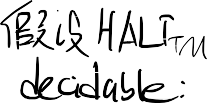 假设 HALT_TM
decidable: